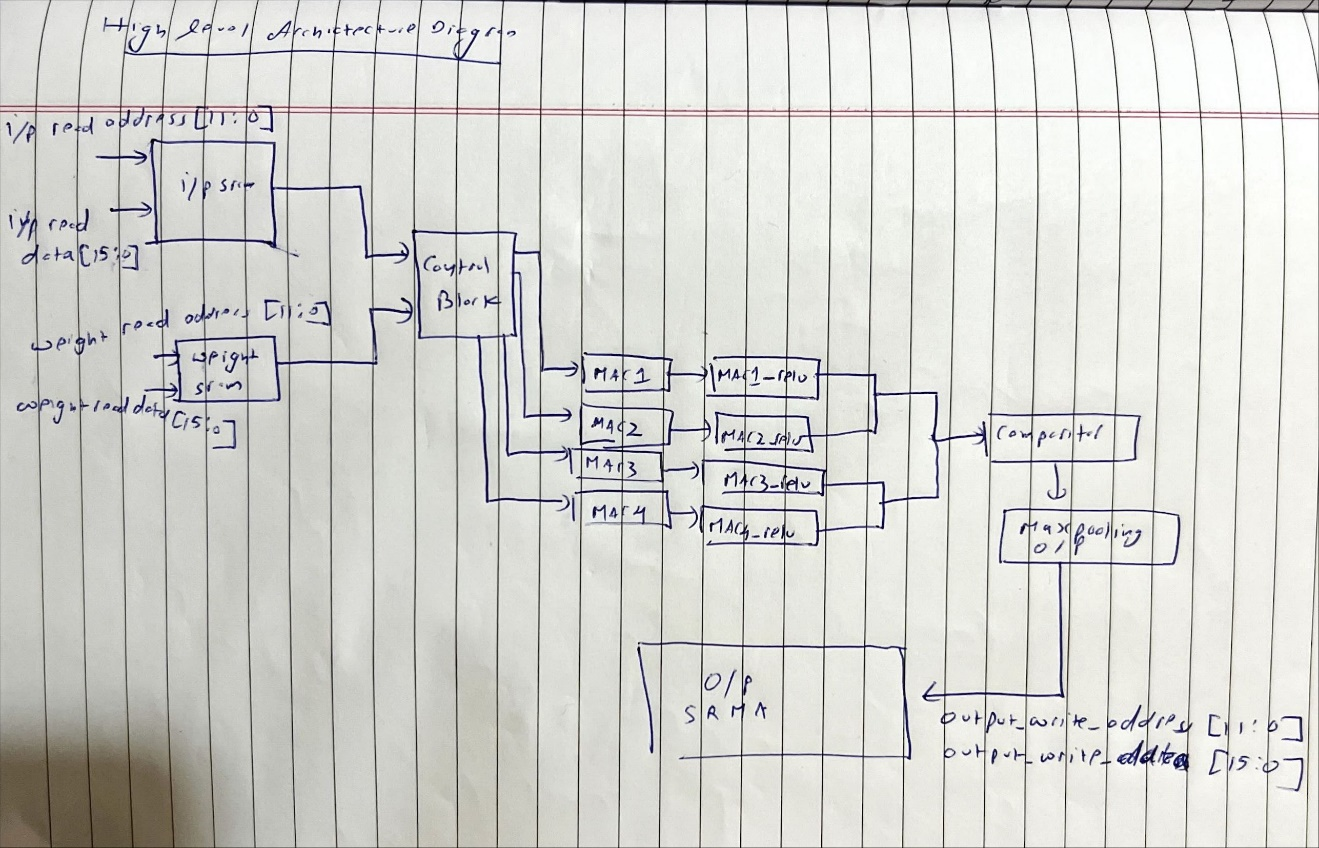 High level Architecture Diagram
i/p read address [11:0]
i/p sram
i/p read
data [15:0]
weight read address [11:0]
weight
sram
weight read data [15:0]
Control
Block
MAC1
MAC1_relu
MAC2
MAC2_relu
MAC3
MAC3_relu
MAC4
MAC4_relu
Comparitor
Maxpooling
O/P
O/P
SRMA
output_write_address [11:0]
output_write_data [15:0]